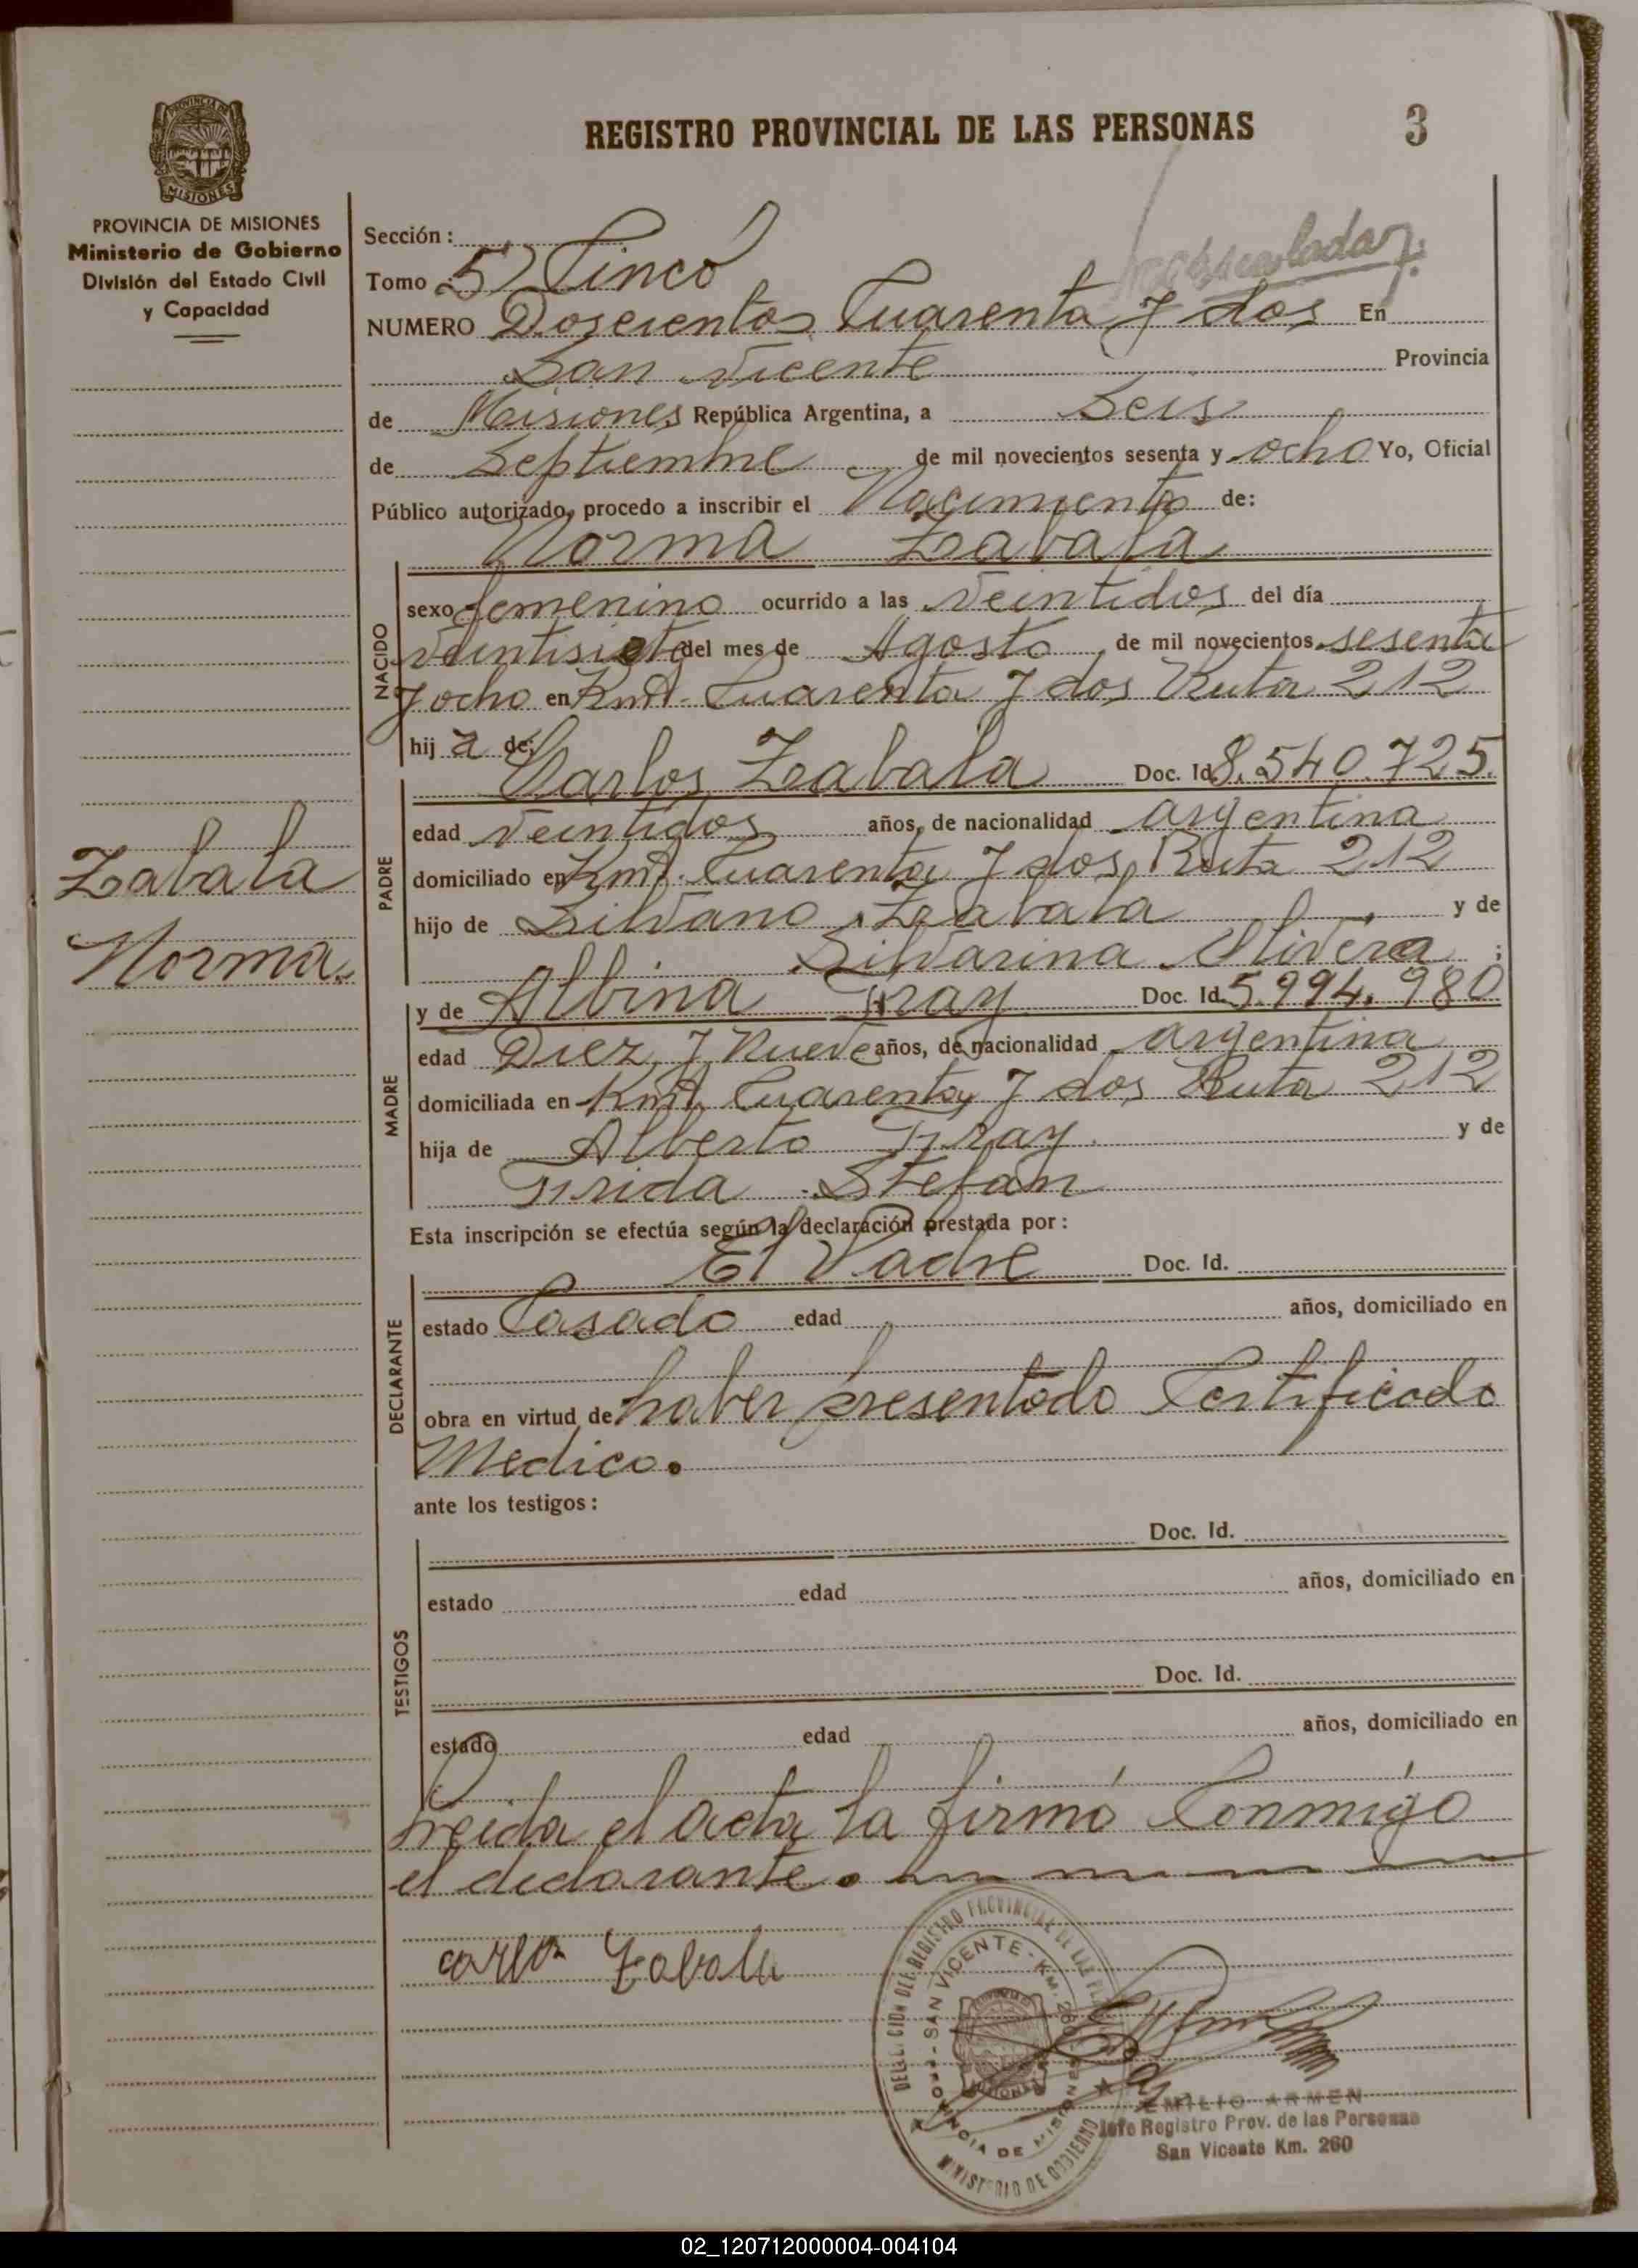 REGISTRO PROVINCIAL DE LAS PERSONAS
3
MISIONES
PROVINCIA DE MISIONES
Ministerio de Gobierno
División del Estado Civil
y Capacidad
Zabala
Norma.
Sección :
Tomo 5) Cinco
NUMERO Doscientos Cuarenta y dos En
San Vicente Provincia
de Misiones República Argentina, a Seis
de Septiembre de mil novecientos sesenta y ocho Yo, Oficial
Público autorizado, procedo a inscribir el Nacimiento de:
Norma Zabala
NACIDO
sexo femenino ocurrido a las Veintidos del día
Veintisiete del mes de Agosto de mil novecientos sesenta
y ocho en Kmt. Cuarenta y dos Ruta 212
hij a de:
Carlos Zabala Doc. Id 8.540.725.
PADRE
edad Veintidos años, de nacionalidad argentina
domiciliado en Kmt. Cuarenta y dos Ruta 212
hijo de Silvano Zabala y de
Silvarina Olivera ;
y de Albina Fray Doc. Id. 5.994.980
MADRE
edad Diez y Nueve años, de nacionalidad argentina
domiciliada en Kmt. Cuarenta y dos Ruta 212
hija de Alberto Fray y de
Frida Stefan
Esta inscripción se efectúa según la declaración prestada por :
El Padre Doc. Id.
DECLARANTE
estado Casado edad años, domiciliado en
obra en virtud de haber presentado Certificado
Medico.
ante los testigos :
Doc. Id.
TESTIGOS
estado edad años, domiciliado en
Doc. Id.
estado edad años, domiciliado en
Leida el acta la firmó Conmigo
el declarante.
Carlos Zabala
DELEGACION DEL REGISTRO PROVINCIAL DE LAS
SAN VICENTE - KM. 260
PROVINCIA DE MISIONES
MINISTERIO DE GOBIERNO
EMILIO ARMEN
Jefe Registro Prov. de las Personas
San Vicente Km. 260
02_120712000004-004104